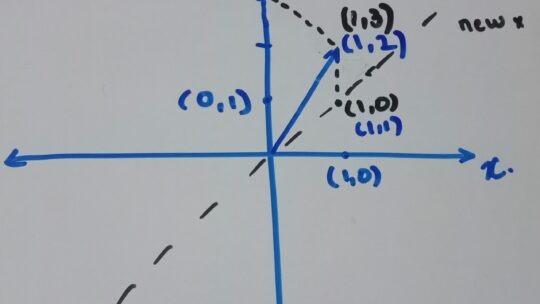 (1,3)
new x
(1,2)
(0,1)
(1,0)
(1,1)
(1,0)
x.